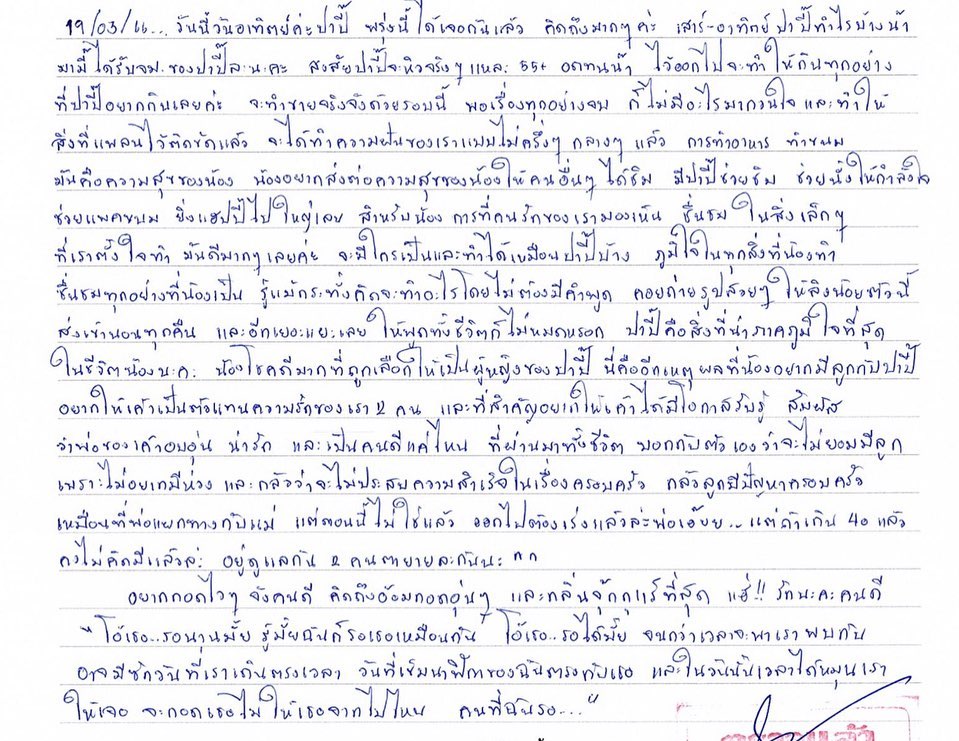 19/03/66... วันนี้วันอาทิตย์ค่ะปาปี๊ พรุ่งนี้ได้เจอกันแล้ว คิดถึงมากๆค่ะ เสาร์-อาทิตย์ปาปี๊ทำไรบ้างน้า
มามี๊ได้รับจม.ของปาปี๊ละนะคะ สงสัยปาปี๊จะหิวจริงๆแหละ 55+ อดทนน้ำ ไว้ออกไปจะทำให้กินทุกอย่าง
ที่ปาปี๊อยากกินเลยค่ะ จะทำขายจริงจังด้วยรอบนี้ พอเรื่องทุกอย่างจบ ก็ไม่มีอะไรมากวนใจ และทำให้
สิ่งที่แพลนไว้ติดขัดแล้ว จะได้ทำความฝันของเราแบบไม่ครึ่งๆ กลางๆ แล้ว การทำอาหาร ทำขนม
มันคือความสุขของน้อง น้องอยากส่งต่อความสุขของน้องให้คนอื่นๆ ได้ชิม มีปาปี๊ช่วยชิม ช่วยนั่งให้กำลังใจ
ช่วยแพคขนม ยิ่งแฮปปี้ไปใหญ่เลย สำหรับน้อง การที่คนรักของเรามองเห็น ชื่นชม ในสิ่งเล็กๆ
ที่เราตั้งใจทำ มันดีมากๆเลยค่ะ จะมีใครเป็นและทำได้เหมือนปาปี๊บ้าง ภูมิใจในทุกสิ่งที่น้องทำ
ชื่นชมทุกอย่างที่น้องเป็น รู้แม้กระทั่งคิดจะทำอะไรโดยไม่ต้องมีคำพูด คอยถ่ายรูปสวยๆ ให้ลิงน้อยตัวนี้
ส่งเข้านอนทุกคืน และอีกเยอะแยะเลย ให้พูดทั้งชีวิตก็ไม่หมดหรอก ปาปี๊คือสิ่งที่น่าภาคภูมิใจที่สุด
ในชีวิตน้องนะคะ น้องโชคดีมากที่ถูกเลือกให้เป็นผู้หญิงของปาปี๊ นี่คืออีกเหตุผลที่น้องอยากมีลูกกับปาปี๊
อยากให้เค้าเป็นตัวแทนความรักของเรา 2 คน และที่สำคัญอยากให้เค้าได้มีโอกาสรับรู้ สัมผัส
ว่าพ่อของเค้าอบอุ่น น่ารัก และเป็นคนดีแค่ไหน ที่ผ่านมาทั้งชีวิต บอกกับตัวเองว่าจะไม่ยอมมีลูก
เพราะไม่อยากมีห่วง และกลัวว่าจะไม่ประสบความสำเร็จในเรื่องครอบครัว กลัวลูกมีปัญหาครอบครัว
เหมือนที่พ่อแยกทางกับแม่ แต่ตอนนี้ไม่ใช่แล้ว ออกไปต้องเร่งแล้วล่ะพ่อเอ้ยย.. แต่ถ้าเกิน 40 แล้ว
คงไม่คิดมีแล้วล่ะ อยู่ดูแลกัน 2 คนตายายละกันนะ ^^
อยากกอดไวๆ จังคนดี คิดถึงอ้อมกอดอุ่นๆ และกลิ่นจั๊กกุแร้ที่สุด แฮ่!! รักนะคะคนดี
"โอ้เธอ..รอนานมั้ย รู้มั้ยฉันก็รอเธอเหมือนกัน โอ้เธอ..รอได้มั้ย จนกว่าเวลาจะพาเราพบกัน
อาจมีซักวันที่เราเดินตรงเวลา วันที่เข็มนาฬิกาของฉันตรงกับเธอ และในวันนั้นเวลาได้หมุนเรา
ให้เจอ จะกอดเธอไม่ให้เธอจากไปไหน คนที่ฉันรอ..."